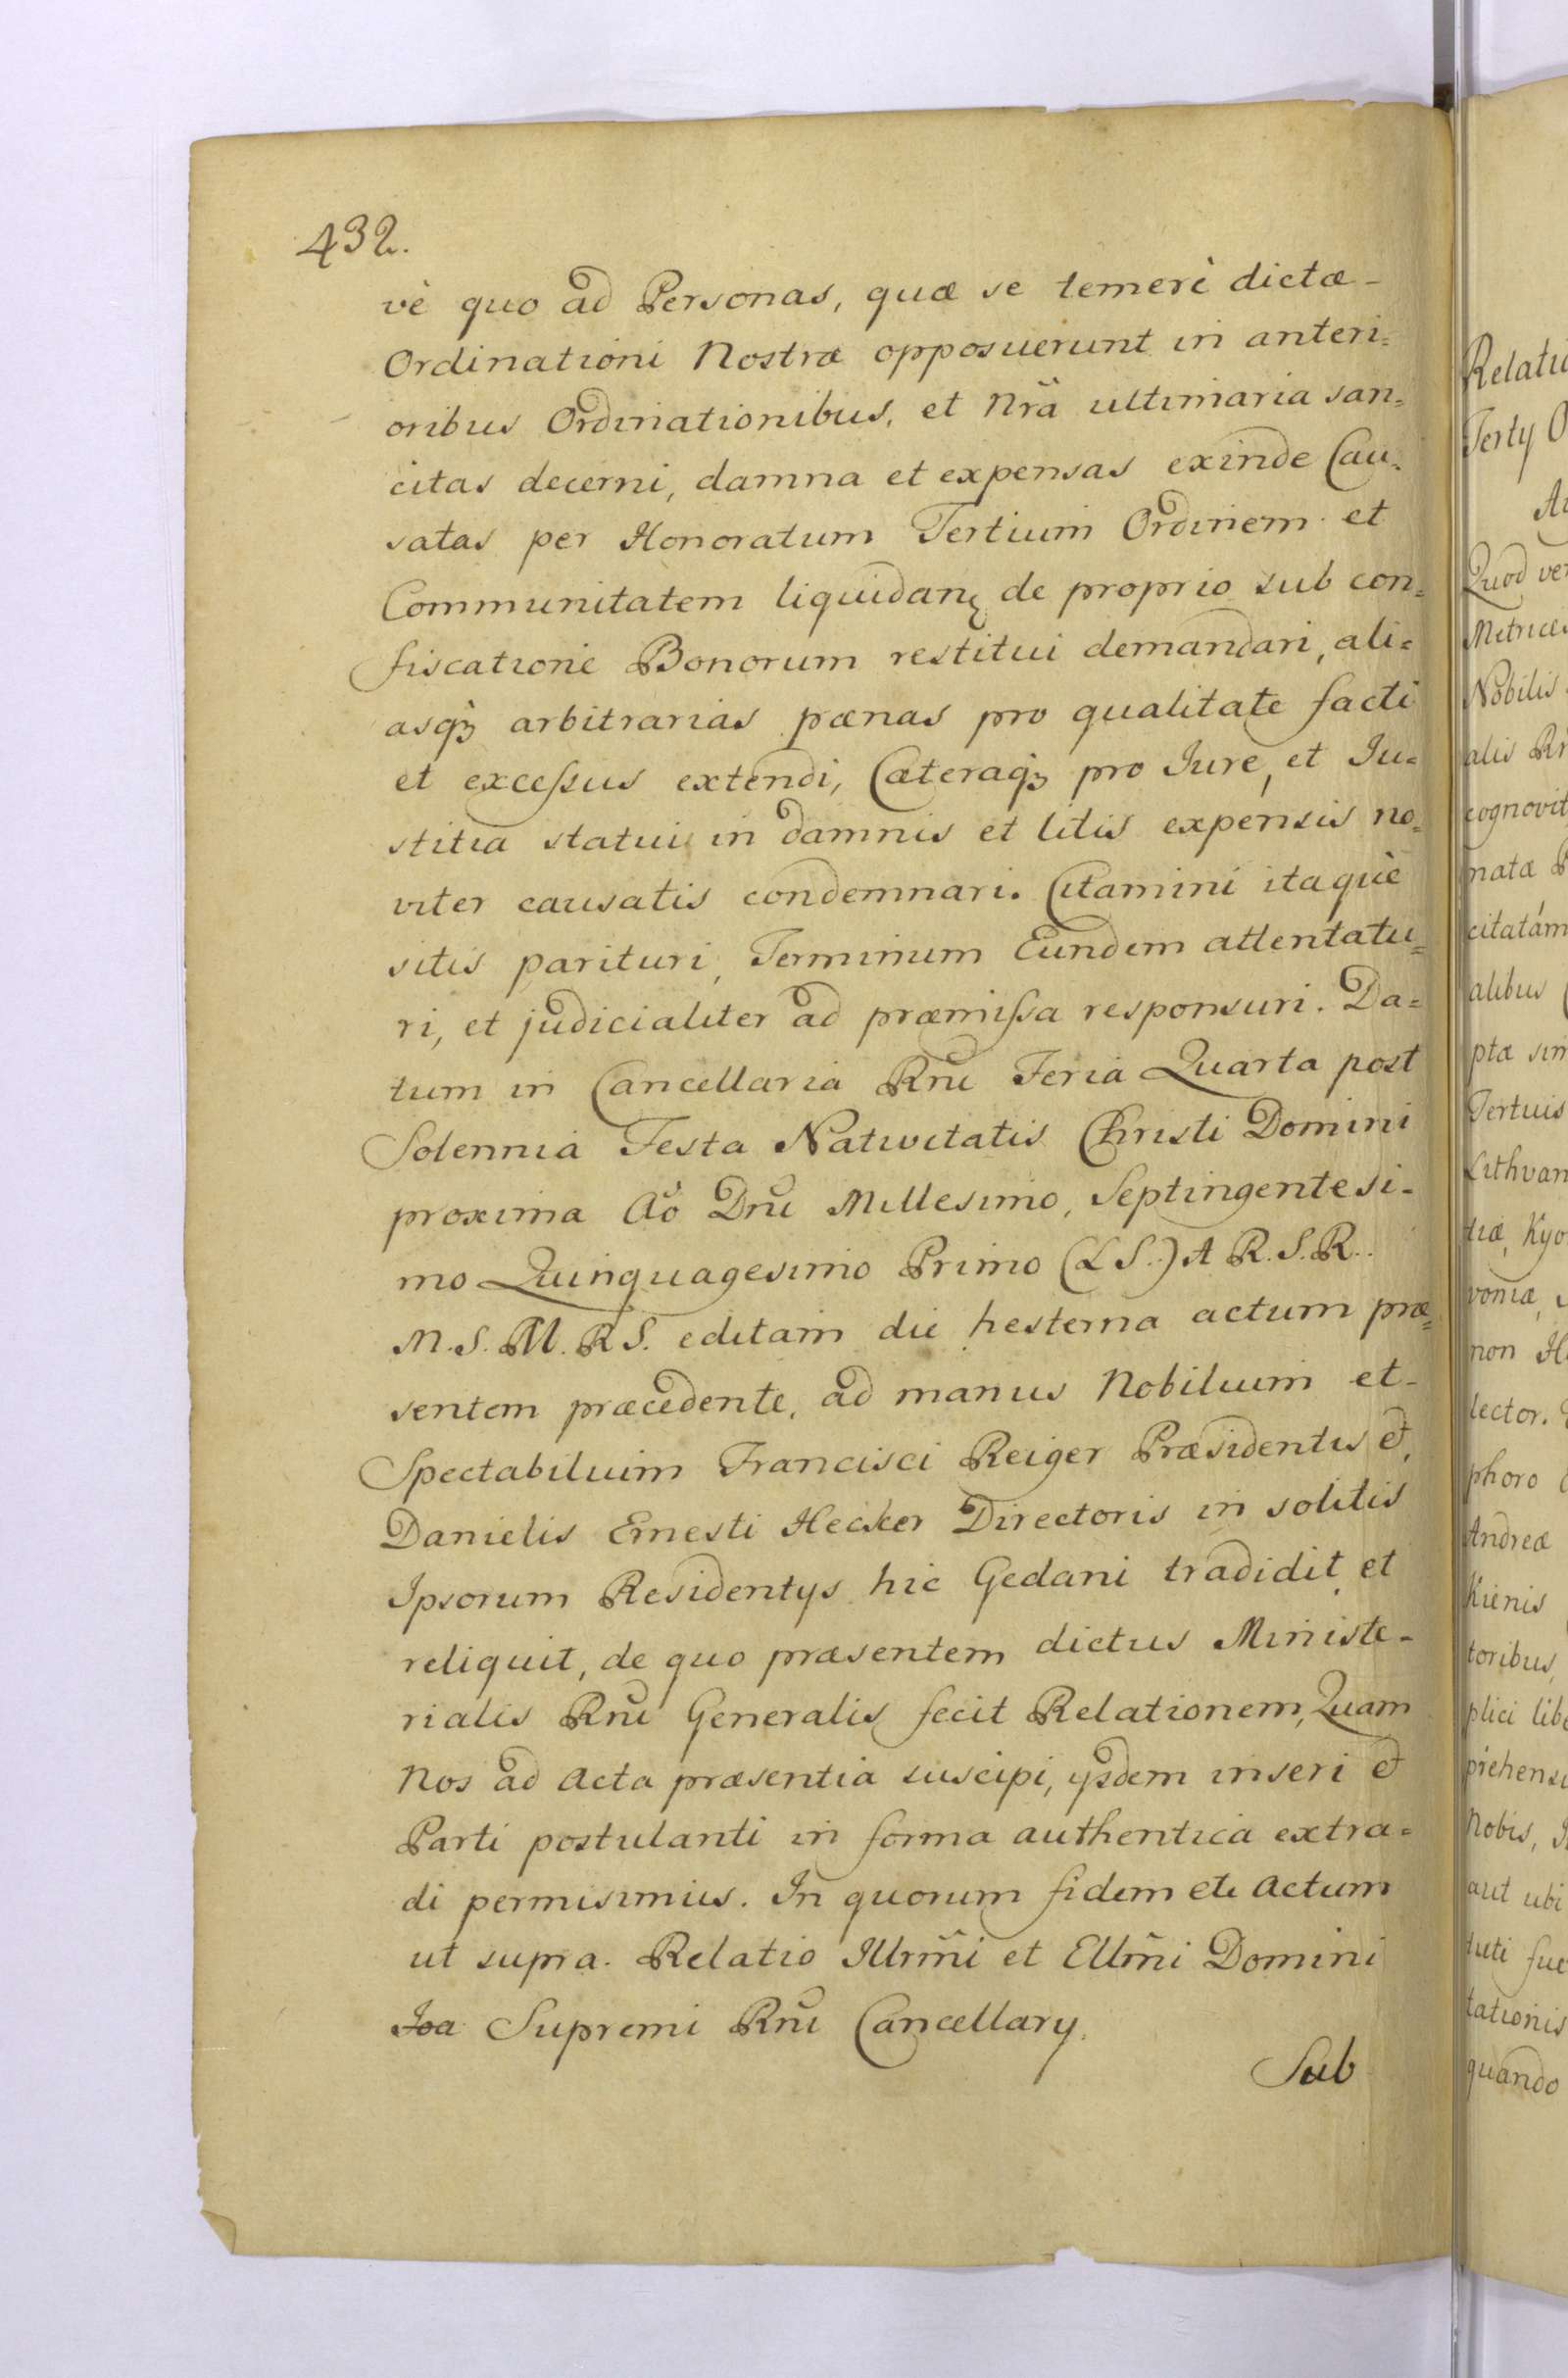 432.
vè quo ad Personas, quæ se temerè dictæ-
Ordinationi Nostræ opposuerunt in anteri=
oribus Ordinationibus, et Nrã ultimaria san=
citas decerni, damna et expensas exinde Cau=
satas per Honoratum Tertium Ordinem et
Communitatem liquidanꝫ de proprio sub con=
fiscatione Bonorum restitui demandari, ali=
asqꝫ arbitrarias pœnas pro qualitate facti
et exceſsus extendi, Cæteraqꝫ pro Jure, et Ju=
stitia statui in damnis et litis expensis no=
viter causatis condemnari. Citamini itaquè
sitis parituri, Terminum Eundem attentatu=
ri, et judicialiter ad præmiſsa responsuri. Da=
tum in Cancellaria Rñi Feria Quarta post
Solennia Festa Nativitatis Christi Domini
proxima Aõ Dñi Millesimo, Septingentesi-
mo Quinquagesimo Primo (L S.) A R. S. R.
M. S. M. R S. editam die hesterna actum præ=
sentem præcedente, ad manus Nobilium et-
Spectabilium Francisci Reiger Præsidentis et,
Danielis Ernesti Hecker Directoris in solitis
Ipsorum Residentys hic Gedani tradidit et
reliquit, de quo præsentem dictus Ministe-
rialis Rñi Generalis fecit Relationem, Quam
Nos ad Acta præsentia suscipi, ysdem inseri et
Parti postulanti in forma authentica extra=
di permisimus. In quorum fidem etc Actum
ut supra. Relatio Illrm̃i et Ellm̃i Domini
Joa Supremi Rñi Cancellary.
Sub
Relatio
Terty O
Quod ver
Metrices
Nobilis
alis Rñ
cognovit
nata
citatám
alibus
ptæ sin
Tertuis
Lithvan
tiæ, Kyo
voniæ,
non H
lector.
phoro
Andreæ
Kienis
toribus,
plici libe
prehensi
Nobis, J
aut ubi
tuti fue
tationis
quando